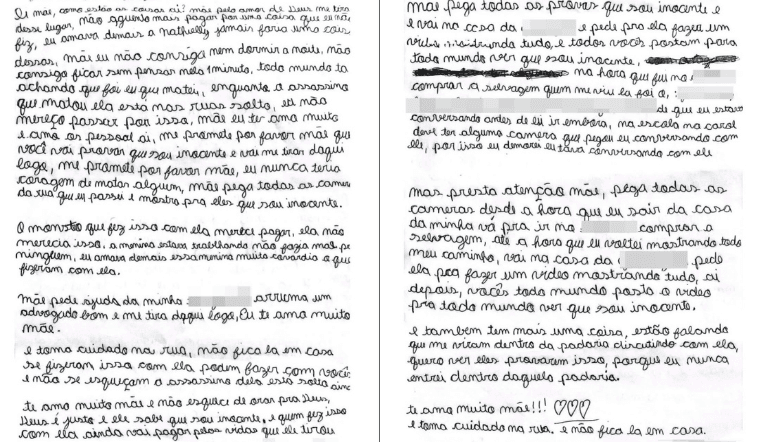 Oi mãe, como estão as coisas ai? mãe pelo amor de Deus me tira
desse lugar, não aguento mais pagar por uma coisa que eu não
fiz, eu amava demais a Nathielly jamais faria uma coisa
dessas, mãe eu não consigo nem dormir a noite, não
consigo ficar sem pensar nela 1 minuto, todo mundo ta
achando que foi eu que matei, enquanto o assassino
que matou ela está nas ruas solto, eu não
mereço passar por isso, mãe eu ter amo muito
e amo os pessoal ai, me promete por favor mãe que
você vai provar que sou inocente e vai me tirar daqui
logo, me promete por favor mãe, eu nunca teria
coragem de matar alguem, mãe pega todas as cameras
da rua que eu passei e mostra pra eles que sou inocente.
O monstro que fez isso com ela merece pagar, ela não
merecia isso, a menina estava trabalhando não fazia mal pra
ninguem, eu amava demais essa menina muito covardia o que
fizeram com ela.
Mãe pede ajuda da minha arruma um
advogado bom e me tira daqui logo, Eu te amo muito
mãe.
e toma cuidado na rua, não fica la em casa
se fizeram isso com ela podem fazer com vocês
e não se esqueçam o assassino dela está solto ainda
te amo muito mãe e não esquece de orar pra Deus,
Deus é justo e ele sabe que sou inocente, e quem fez isso
com ela ainda vai pagar pelas vidas que ele tirou
mai pega todas as provas que sou inocente e
e vai na casa da e pede pra ela fazer um
video mostrando tudo, e todos vocês postam para
todo mundo ver que sou inocente,
na hora que fui no
comprar a selvagem quem me viu la foi o,
de que eu estava
conversando antes de eu ir embora, na escola na carol
deve ter alguma camera que pegou eu conversando com
ele, por isso eu demorei eu tava conversando com ele
mas presta atenção mãe, pega todas as
cameras desde a hora que eu sair da casa
da minha vó pra ir no comprar a
selvagem, até a hora que eu voltei mostrando todo
meu caminho, vai na casa da pede
ela pra fazer um video mostrando tudo, ai
depois, vocês todo mundo posta o video
pra todo mundo ver que sou inocente.
e tambem tem mais uma coisa, estão falando
que me viram dentro da padaria discutindo com ela,
quero ver eles provarem isso, porque eu nunca
entrei dentro daquela padaria.
te amo muito mãe!!! ♡♡♡
e toma cuidado na rua. e não fica la em casa.